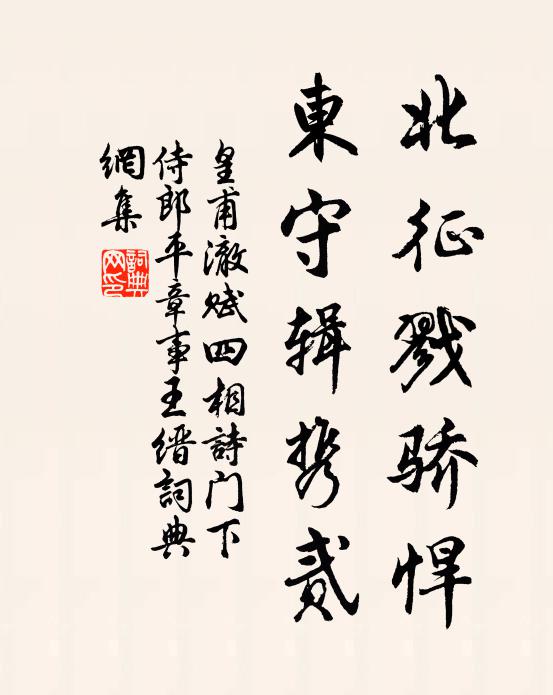 北征戮骄悍
東守辑携贰
皇甫澈赋四相詩门下
侍郎平章事王缙詞典
網集
詞典网印